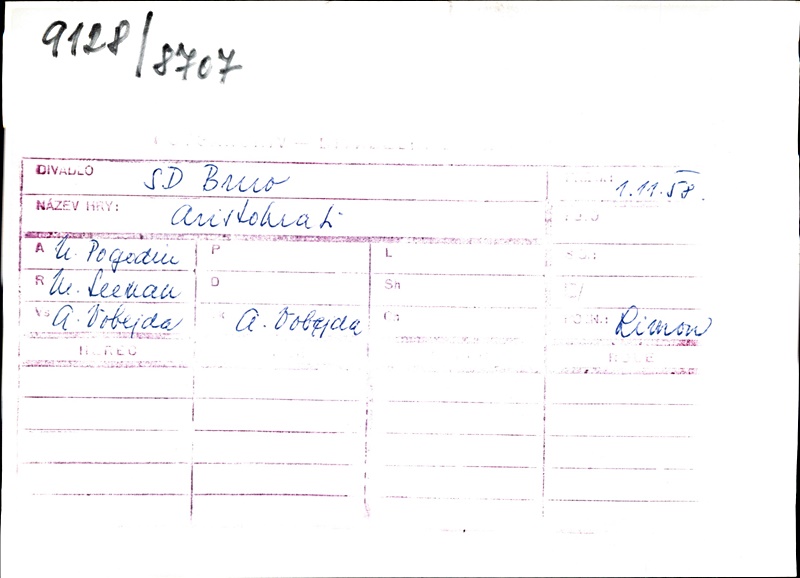 9128/8707
DIVADLO SD Brno 1.11.58.
NÁZEV HRY: Aristokrati
A N. Pogodin P L
R M. Seeman D Sh
Vs A. Vobejda A. Vobejda Rimon
HEREC ROLE